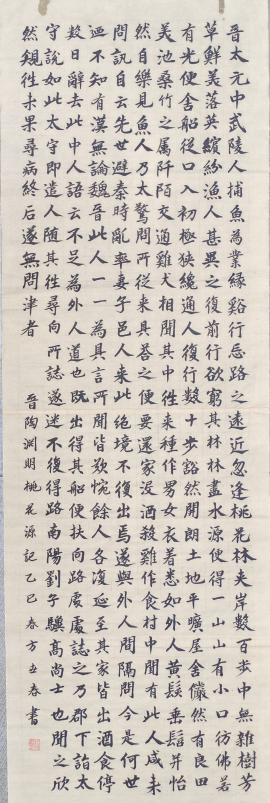 晋太元中武陵人捕魚為業緣谿行忘路之遠近忽逢桃花林夾岸數百步中無雜樹芳
草鮮美落英繽紛漁人甚異之復前行欲窮其林林盡水源便得一山山有小口彷佛若
有光便舍船從口入初極狹纔通人復行數十步豁然開朗土地平曠屋舍儼然有良田
美池桑竹之屬阡陌交通雞犬相聞其中徃来種作男女衣着悉如外人黄髮垂髫并怡
然自樂見魚人乃大驚問所從来具答之便要還家设酒殺雞作食村中聞有此人咸来
問訊自云先世避秦時亂率妻子邑人来此绝境不復出焉遂與外人間隔問今是何世
迺不知有漢無論魏晉此人一一為具言所聞皆歎惋餘人各復延至其家皆出酒食停
數日辭去此中人語云不足為外人道也既出得其船便扶向路處處誌之乃郡下詣太
守說如此太守即遣人随其徃尋向所誌遂迷不復得路南陽劉子驥高尚士也聞之欣
然規徃未果尋病終后遂無問津者 晉陶淵明桃花源記乙巳春方立春書